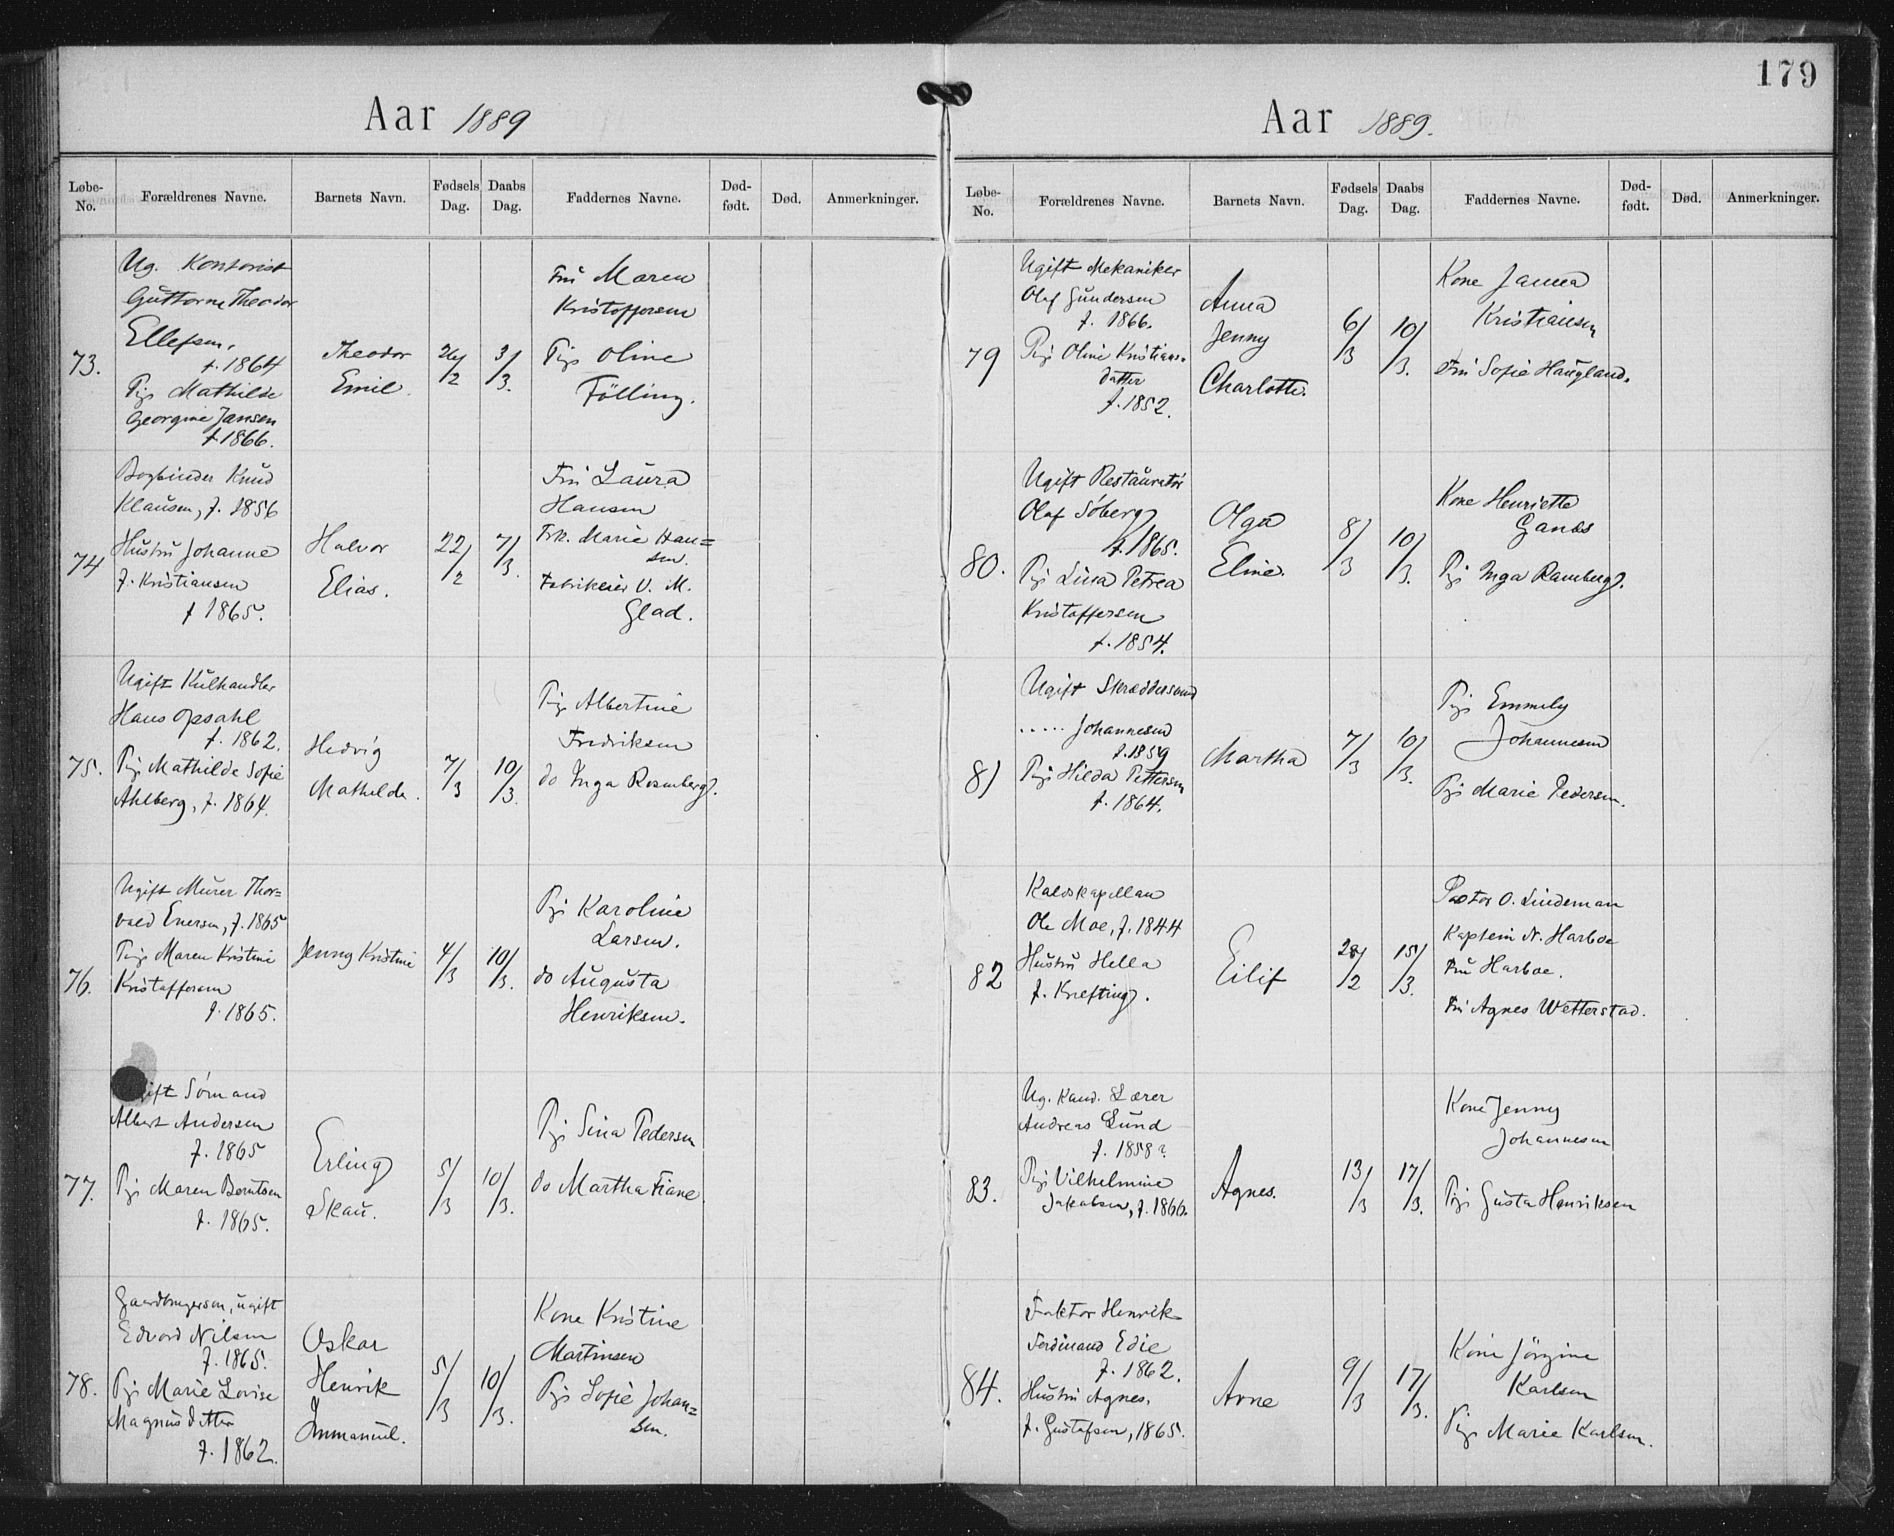 179
Aar 1889
Løbe-No. Forældrenes Navne. Barnets Navn. Fødsels Dag. Daabs Dag. Faddernes Navne. Død-født. Død. Anmerkninger.
73.
Ug. Kontorist
Guttorm Theodor
Ellefsen,
f. 1864
Pige Mathilde
Georgine Jansen
f. 1866.
Theodor
Emil.
26/2
3/3.
Fru Maren
Kristoffersen
Pige Oline
Fölling.
74
Bogbinder Knud
Klausen, f. 1856
Hustru Johanne
f. Kristiansen
f 1865.
Halvor
Elias.
22/2
7/3.
Fru Laura
Hansen
Frk. Marie Han=
sen.
Fabrikeier V. M.
Glad.
75.
Ugift Kulhandler
Hans Opsahl
f. 1862.
Pige Mathilde Sofie
Ahlberg, f. 1864.
Hedvig
Mathilde.
7/3
10/3.
Pige Albertine
Fredriksen
do Inga Rosenberg.
76.
Ugift Murer Thor=
vald Enersen, f. 1865
Pige Maren Kristine
Kristoffersen
f. 1865.
Jenny Kristine
4/3
10/3.
Pige Karoline
Larsen.
do Augusta
Henriksen.
77.
Ugift Sömand
Albert Andersen
f. 1865
Pige Maren Berntsen
f. 1865.
Erling
Skau.
5/3
10/3.
Pige Sina Pedersen
do Martha Fiane
78.
Gaardbrugersøn, ugift
Edvard Nilsen
f. 1865.
Pige Marie Lovise
Magnusdatter
f. 1862.
Oskar
Henrik
Immanuel.
5/3
10/3.
Kone Kristine
Martinsen
Pige Sofie Johan=
sen.
Aar 1889.
Løbe-No. Forældrenes Navne. Barnets Navn. Fødsels Dag. Daabs Dag. Faddernes Navne. Død-født. Død. Anmerkninger.
79
Ugift Mekaniker
Olaf Gundersen
f. 1866.
Pige Oline Kristians-
datter
f. 1852.
Anna
Jenny
Charlotte.
6/3
10/3.
Kone Janna
Kristiansen
Fru Sofie Haugland.
80.
Ugift Restauratör
Olaf Söberg
f. 1865.
Pige Lina Petrea
Kristoffersen
f. 1854.
Olga
Eline.
8/3
10/3.
Kone Henriette
Ganes
Pige Inga Ramberg.
81
Ugift Skræddersvend
..... Johannesen
f. 1859
Pige Hilda Pettersen
f. 1864.
Martha
7/3
10/3.
Pige Emmely
Johannesen
Pige Marie Pedersen.
82
Kaldskapellan
Ole Moe, f. 1844
Hustru Hella
f. Krefting.
Eilif
28/2
15/3.
Pastor O. Lindeman
Kaptein N. Harboe
Fru Harboe.
Fru Agnes Wetterstad.
83.
Ug. Kand. Lærer
Andreas Lund
f. 1858?
Pige Vilhelmine
Jakobsen, f. 1866.
Agnes.
13/3
17/3.
Kone Jenny
Johannesen
Pige Gusta Henriksen
84.
Faktor Henrik
Ferdinand Edie
f. 1862.
Hustru Agnes,
f. Gustafsen, 1865.
Arne
9/3
17/3.
Kone Jörgine
Karlsen
Pige Marie Karlsen.